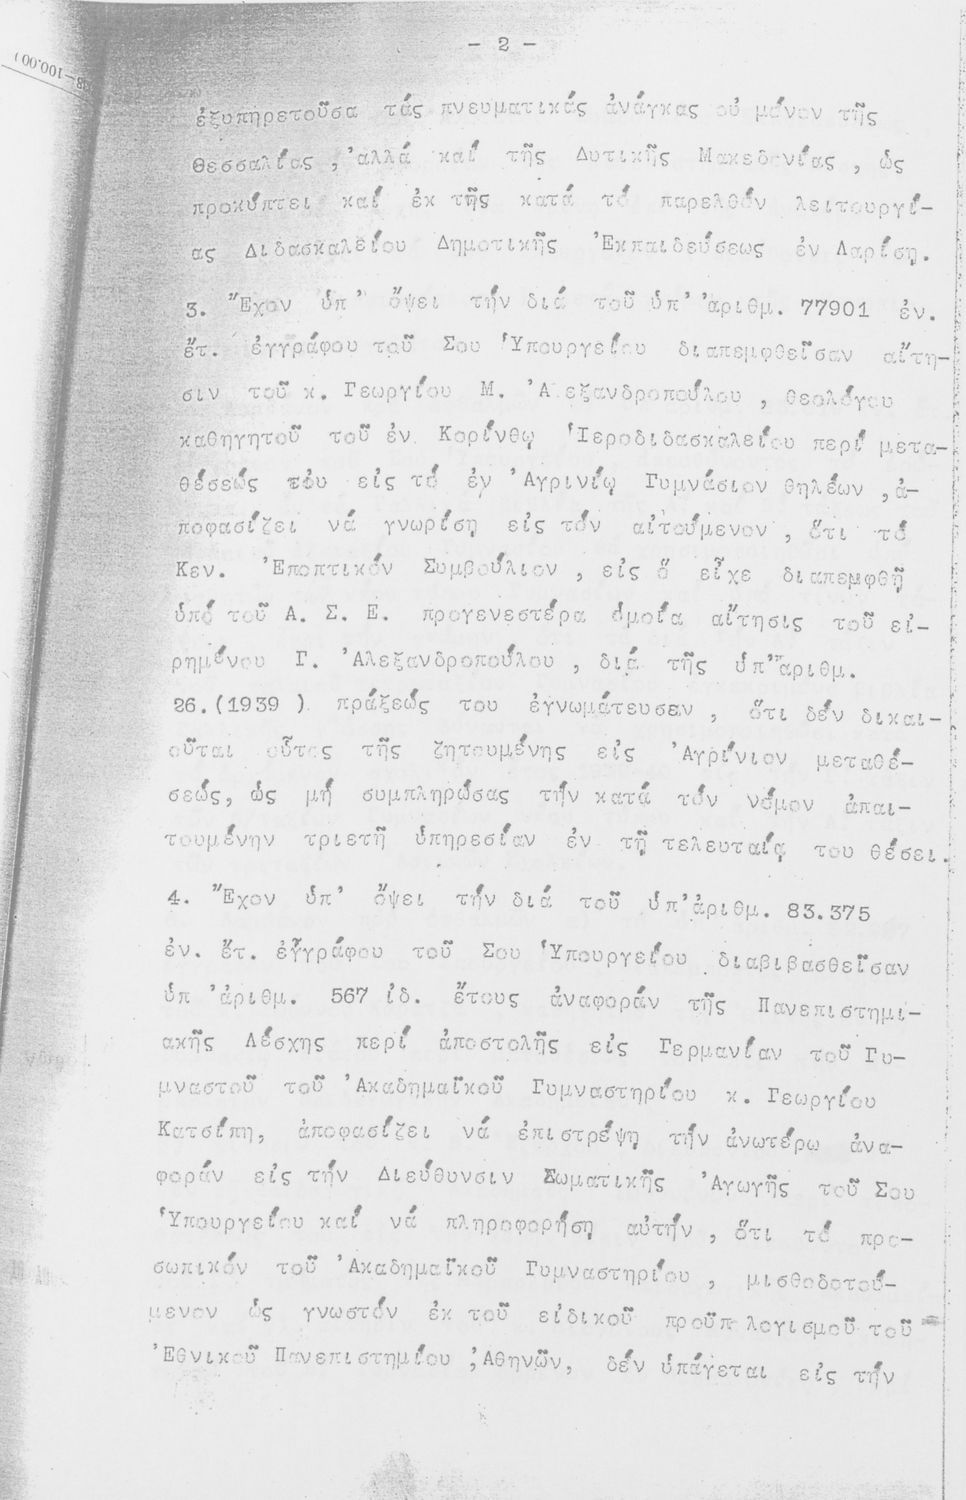 - 2 -
ἐξυπηρετοῦσα τάς πνευματικάς ἀνάγκας οὐ μόνον τῆς
Θεσσαλίας ,'αλλά καί τῆς Δυτικῆς Μακεδονίας , ὡς
προκύπτει καί ἐκ τῆς κατά τό παρελθόν λειτουργί-
ας Διδασκαλείου Δημοτικῆς 'Εκπαιδεύσεως ἐν Λαρίση.
3. "Εχον ὑπ' ὄψει τήν διά τοῦ ὑπ' 'αριθμ. 77901 ἐν.
ἔτ. ἐγγράφου τοῦ Σου Ὑπουργείου διαπεμφθεῖσαν αἴτη-
σιν τοῦ κ. Γεωργίου Μ. 'Αλεξανδροπούλου , θεολόγου
καθηγητοῦ τοῦ ἐν Κορίνθῳ Ἱεροδιδασκαλείου περί μετα-
θέσεώς του εἰς τό ἐν 'Αγρινίῳ Γυμνάσιον θηλέων ,ἀ-
ποφασίζει νά γνωρίση εἰς τόν αἰτούμενον , ὅτι τό
Κεν. 'Εποπτικόν Συμβούλιον , εἰς ὅ εἶχε διαπεμφθῆ
ὑπό τοῦ Α. Σ. Ε. προγενεστέρα ὁμοία αἴτησις τοῦ εἰ-
ρημένου Γ. 'Αλεξανδροπούλου , διά τῆς ὑπ''αριθμ.
26.(1939 ) πράξεώς του ἐγνωμάτευσεν , ὅτι δέν δικαι-
οῦται οὗτος τῆς ζητουμένης εἰς 'Αγρίνιον μεταθέ-
σεώς, ὡς μή συμπληρώσας τήν κατά τόν νόμον ἀπαι-
τουμένην τριετῆ ὑπηρεσίαν ἐν τῇ τελευταίᾳ του θέσει.
4. "Εχον ὑπ' ὄψει τήν διά τοῦ ὑπ'ἀριθμ. 83.375
ἐν. ἔτ. ἐγγράφου τοῦ Σου Ὑπουργείου διαβιβασθεῖσαν
ὑπ 'ἀριθμ. 567 ἰδ. ἔτους ἀναφοράν τῆς Πανεπιστημι-
ακῆς Λέσχης περί ἀποστολῆς εἰς Γερμανίαν τοῦ Γυ-
μναστοῦ τοῦ 'Ακαδημαϊκοῦ Γυμναστηρίου κ. Γεωργίου
Κατσίπη, ἀποφασίζει νά ἐπιστρέψη τήν ἀνωτέρω ἀνα-
φοράν εἰς τήν Διεύθυνσιν Σωματικῆς 'Αγωγῆς τοῦ Σου
Ὑπουργείου καί νά πληροφορήση αὐτήν , ὅτι τό προ-
σωπικόν τοῦ 'Ακαδημαϊκοῦ Γυμναστηρίου , μισθοδοτού-
μενον ὡς γνωστόν ἐκ τοῦ εἰδικοῦ προϋπολογισμοῦ τοῦ
'Εθνικοῦ Πανεπιστημίου 'Αθηνῶν, δέν ὑπάγεται εἰς τήν